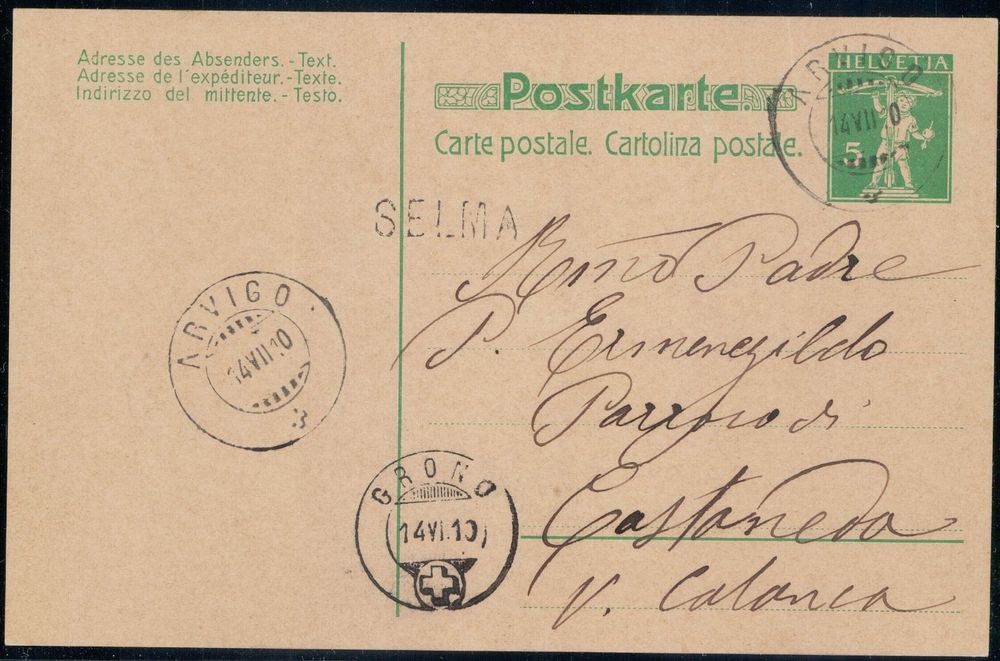 Adresse des Absenders.-Text.
Adresse de l'expéditeur.-Texte.
Indirizzo del mittente.-Testo.
Postkarte.
Carte postale. Cartolina postale.
HELVETIA
5
ARVIGO
14 VII 10
SELMA
Rmo Padre
P. Ermenegildo
Parroco di
Castaneda
V. Calanca
ARVIGO
14 VII 10
GRONO
14 VI. 10